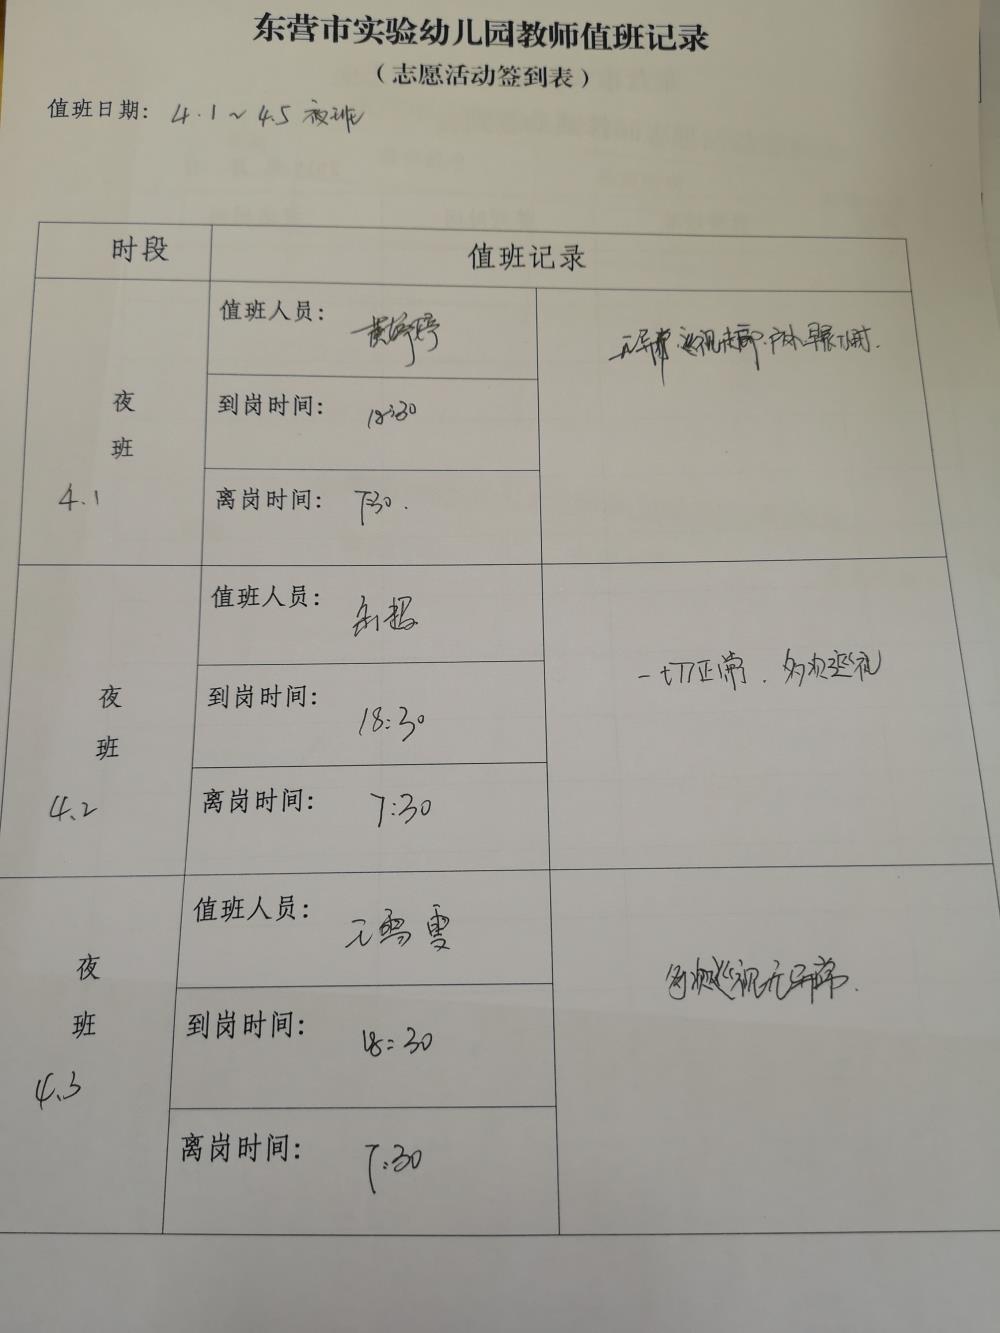 东营市实验幼儿园教师值班记录
（志愿活动签到表）
值班日期：4.1～4.5 夜班
时段
值班记录
夜班
4.1
值班人员：
到岗时间：18:30
离岗时间：7:30.
无异常
夜班
4.2
值班人员：
到岗时间：18:30
离岗时间：7:30
一切正常．多次巡视
夜班
4.3
值班人员：
到岗时间：18:30
离岗时间：7:30
多次巡视无异常．